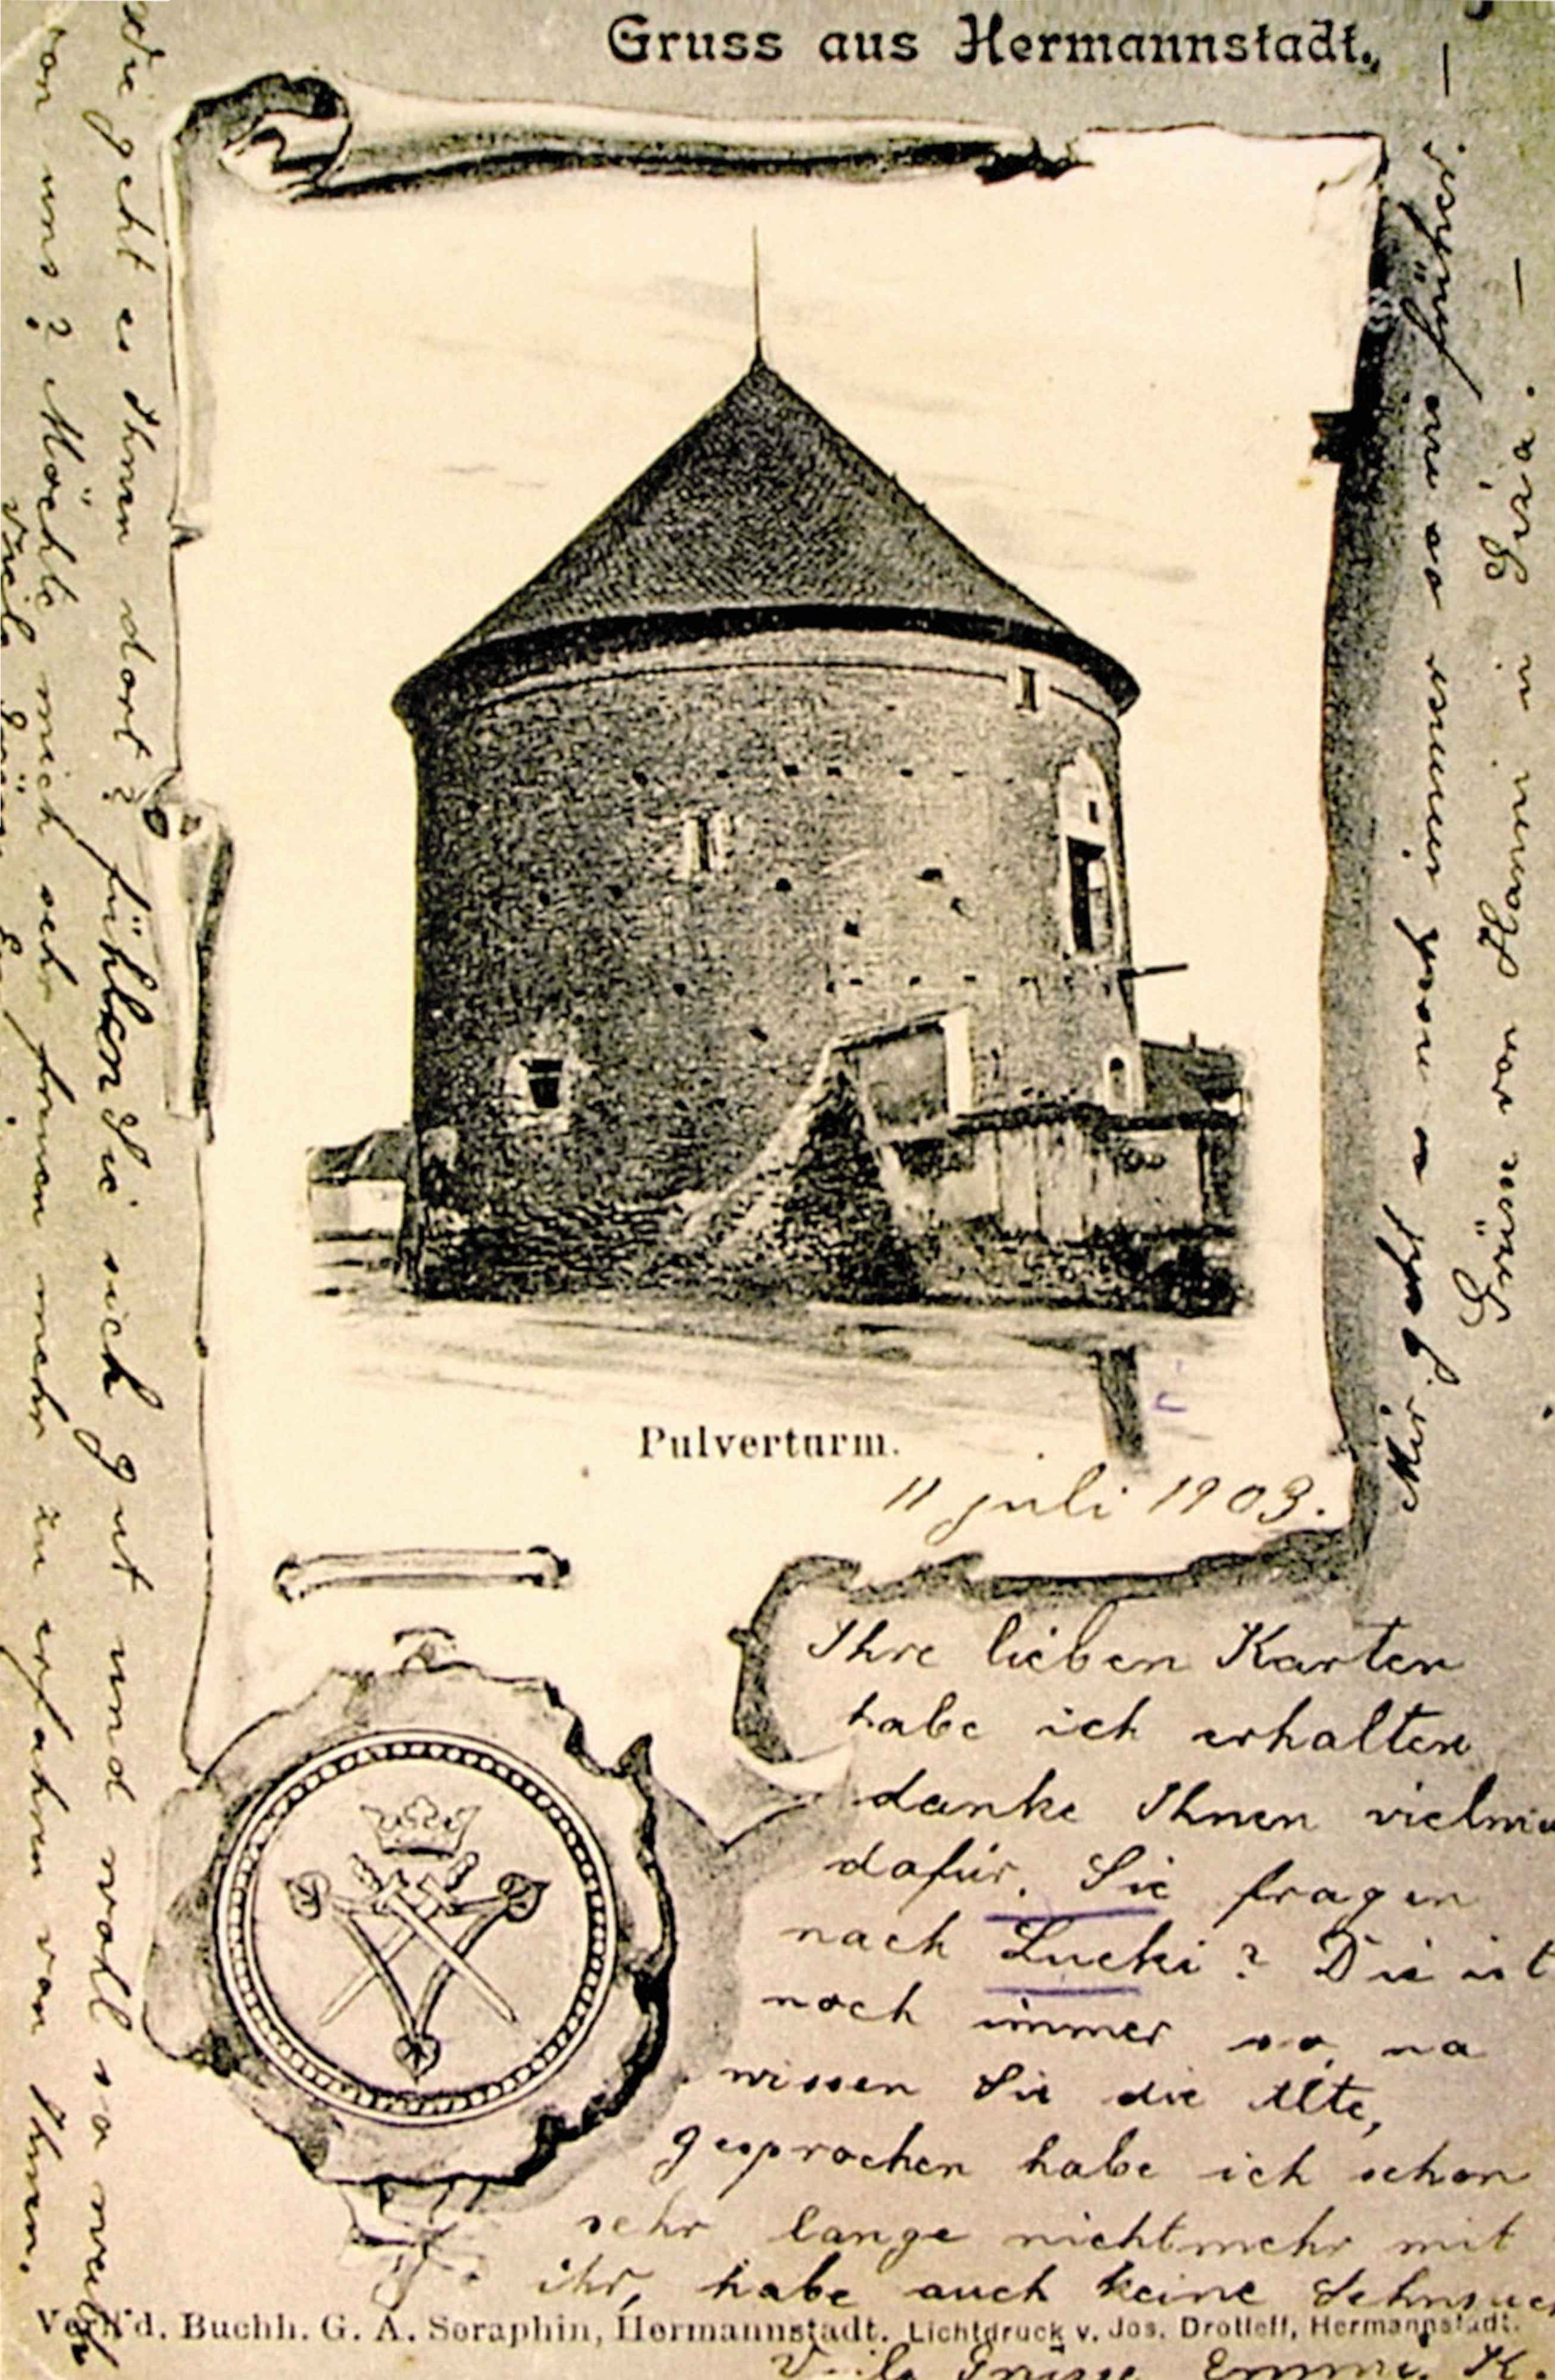 Gruss aus Hermannstadt.
Pulverturm.
11 juli 1903.
Ihre lieben Karten
habe ich erhalten
danke Ihnen vielma
dafür. Sie fragen
nach Lucki? Die ist
noch immer so, na
wissen Sie die Alte,
gesprochen habe ich schon
sehr lange nichtmehr mit
ihr, habe auch keine Sehnsuch
Verl. d. Buchh. G. A. Seraphin, Hermannstadt. Lichtdruck v. Jos. Drotleff, Hermannstadt.
Viele Grüsse Emmi K.
Mir geht es ganz immer so wie
Grüsse von Hanni u Gra.
Wie geht es Ihnen dort? fühlen Sie sich gut und wohl so weit
von uns? Möchte mich sehr freuen mehr zu erfahren von Ihnen.
Viele Grüsse